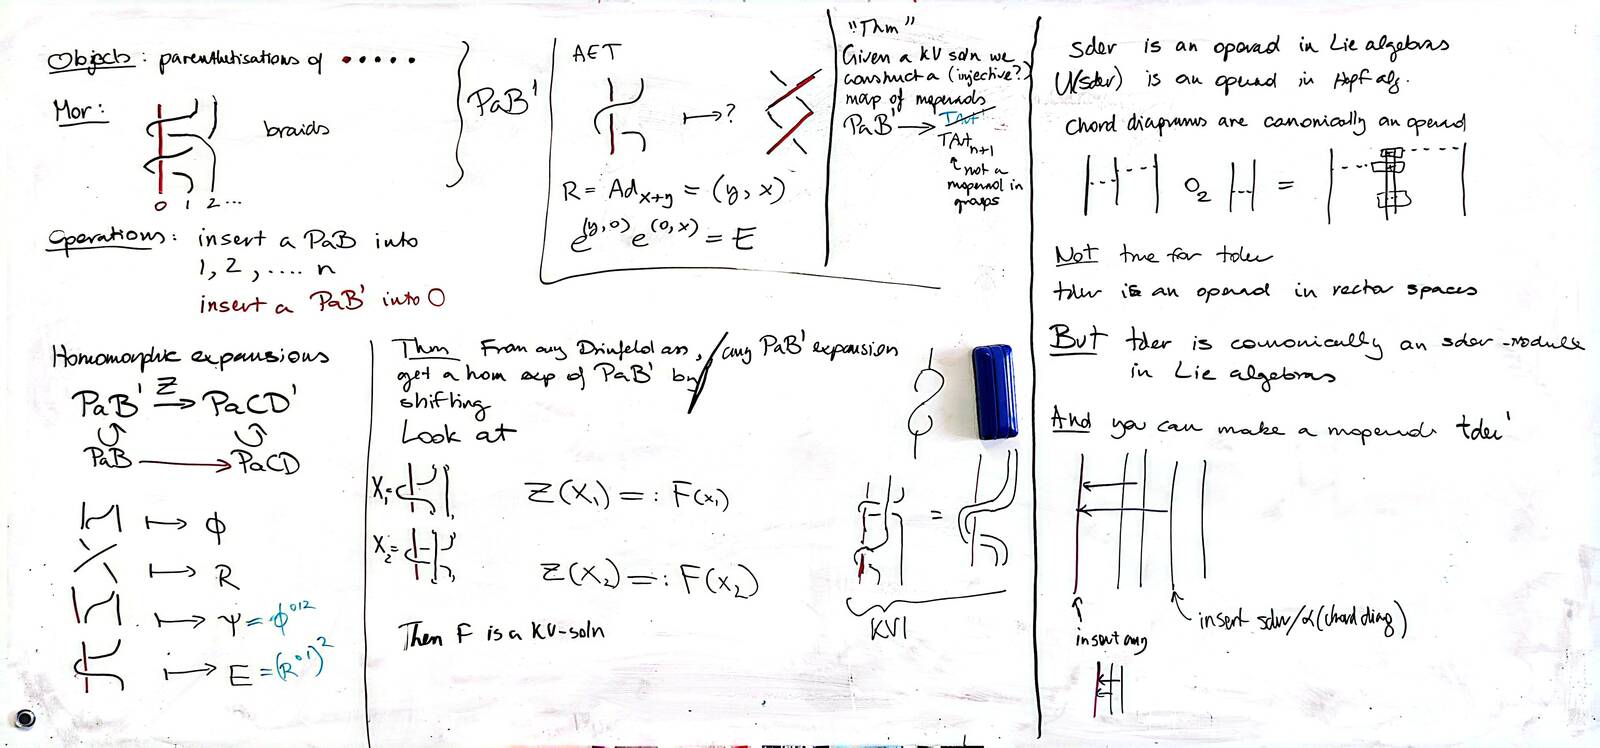 Objects: parenthetisations of • • • • •
Mor:
braids
PaB'
0 1 2 ...
Operations: insert a PaB into
1, 2, .... n
insert a PaB' into 0
AET
↦?
R = Ad_{x+y} = (y, x)
e^{(y,0)} e^{(0,x)} = E
"Thm"
Given a KV soln we
construct a (injective?)
map of moperads
PaB' → TAut'
TAut_{n+1}
↑ not a
moperad in
groups
Homomorphic expansions
PaB' →^Z PaCD'
PaB → PaCD
↦ Φ
↦ R
↦ Ψ = Φ^{012}
↦ E = (R^{01})^2
Thm From any Drinfeld ass, / any PaB' expansion
get a hom exp of PaB' by
shifting
Look at
X_1 =
Z(X_1) =: F(x_1)
X_2 =
Z(X_2) =: F(x_2)
Then F is a KV-soln
=
KV1
sder is an operad in Lie algebras
U(sder) is an operad in Hopf alg.
Chord diagrams are canonically an operad
O_2 =
Not true for tder
tder is an operad in vector spaces
But tder is canonically an sder-module
in Lie algebras
And you can make a moperad tder'
insert any
insert sder/α(chord diag)